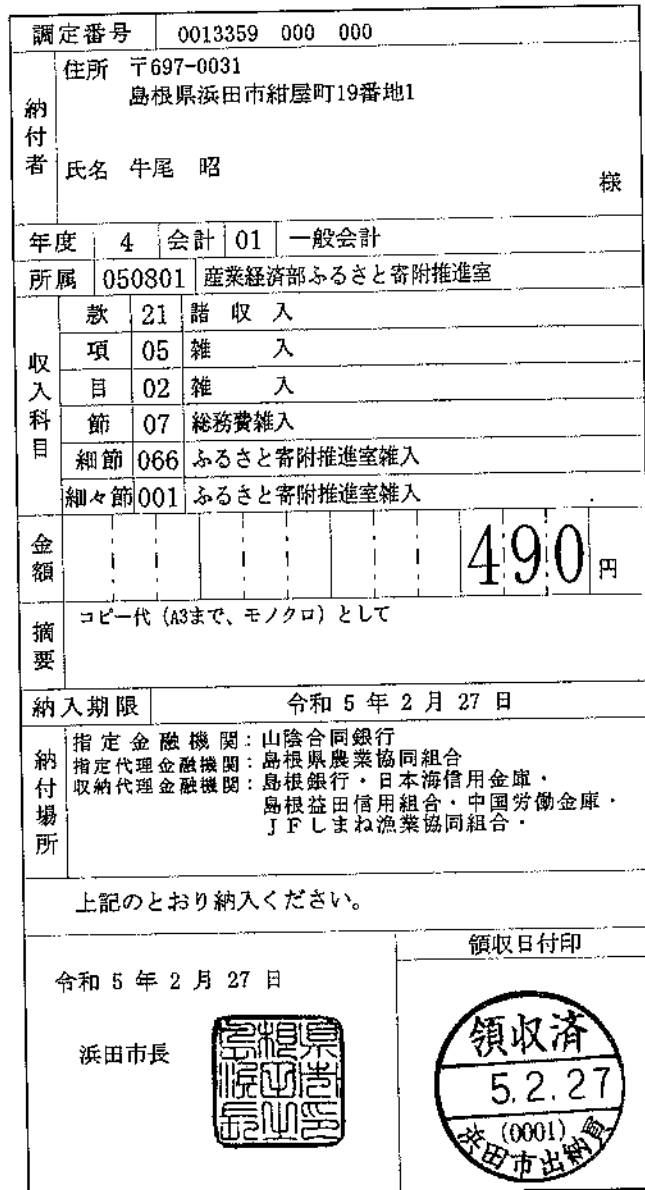 調定番号 0013359 000 000
納付者 住所 〒697-0031
島根県浜田市紺屋町19番地1
氏名 牛尾 昭
様
年度 4 会計 01 一般会計
所属 050801 産業経済部ふるさと寄附推進室
収入科目
款 21 諸収入
項 05 雑入
目 02 雑入
節 07 総務費雑入
細節 066 ふるさと寄附推進室雑入
細々節 001 ふるさと寄附推進室雑入
金額 490 円
摘要 コピー代(A3まで、モノクロ)として
納入期限 令和 5 年 2 月 27 日
納付場所
指定金融機関:山陰合同銀行
指定代理金融機関:島根県農業協同組合
収納代理金融機関:島根銀行・日本海信用金庫・
島根益田信用組合・中国労働金庫・
JFしまね漁業協同組合・
上記のとおり納入ください。
領収日付印
令和 5 年 2 月 27 日
浜田市長
島根県浜田市長之印
領収済
5.2.27
(0001)
浜田市出納員